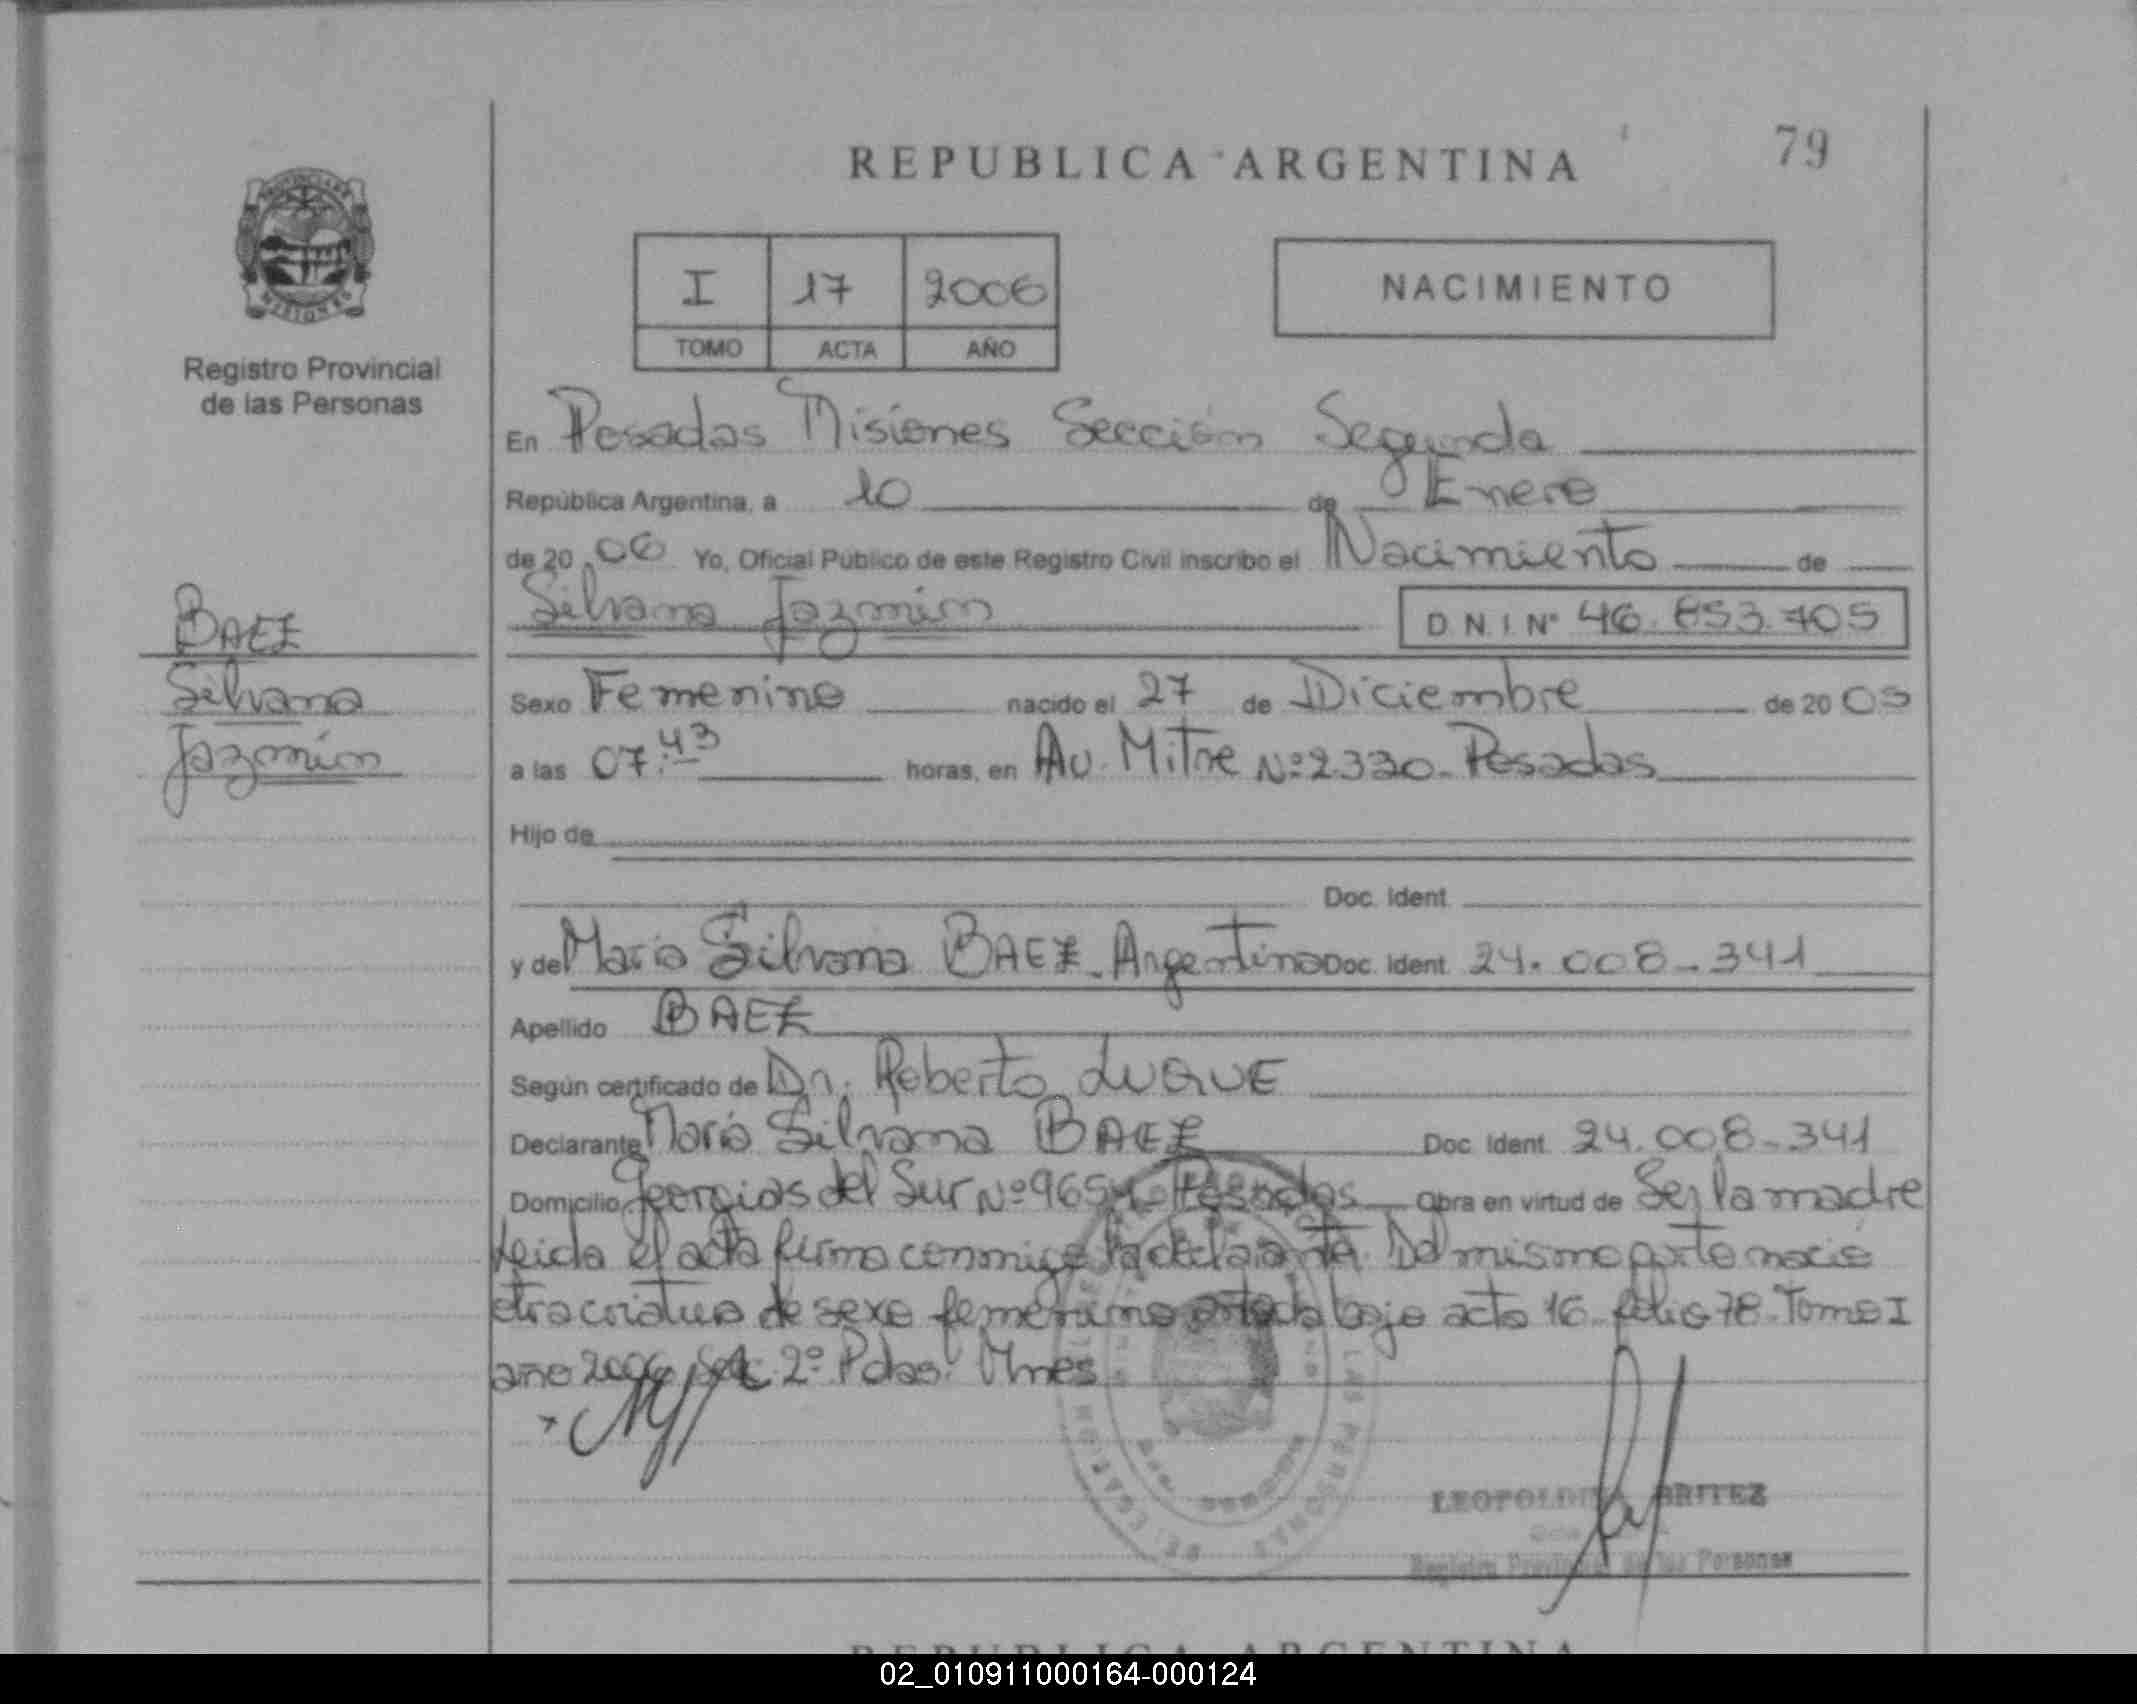 REPUBLICA ARGENTINA
79
I 17 2006
TOMO ACTA AÑO
NACIMIENTO
Registro Provincial
de las Personas
En Posadas Misiones Sección Segunda
República Argentina, a 10 de Enero
de 2006 Yo, Oficial Público de este Registro Civil inscribo el Nacimiento de
Silvana Jazmín D.N.I. Nº 46.853.705
BAEZ
Silvana
Jazmín
Sexo Femenino nacido el 27 de Diciembre de 2005
a las 07:43 horas, en Av. Mitre Nº 2330 - Posadas
Hijo de
Doc. Ident.
y de María Silvana BAEZ - Argentina Doc. Ident. 24.008-341
Apellido BAEZ
Según certificado de Dr. Roberto LUQUE
Declarante María Silvana BAEZ Doc. Ident. 24.008-341
Domicilio Georgias del Sur Nº 9654 - Posadas Obra en virtud de Ser la madre
Leida el acta firma conmigo la declarante. Del mismo parto nació
otra criatura de sexo femenino bajo acta 16 - folio 78 - Tomo I
año 2006 Sec. 2º Pdas. Mnes
BRITEZ
Registro Provincial de las Personas
REPUBLICA ARGENTINA
02_010911000164-000124